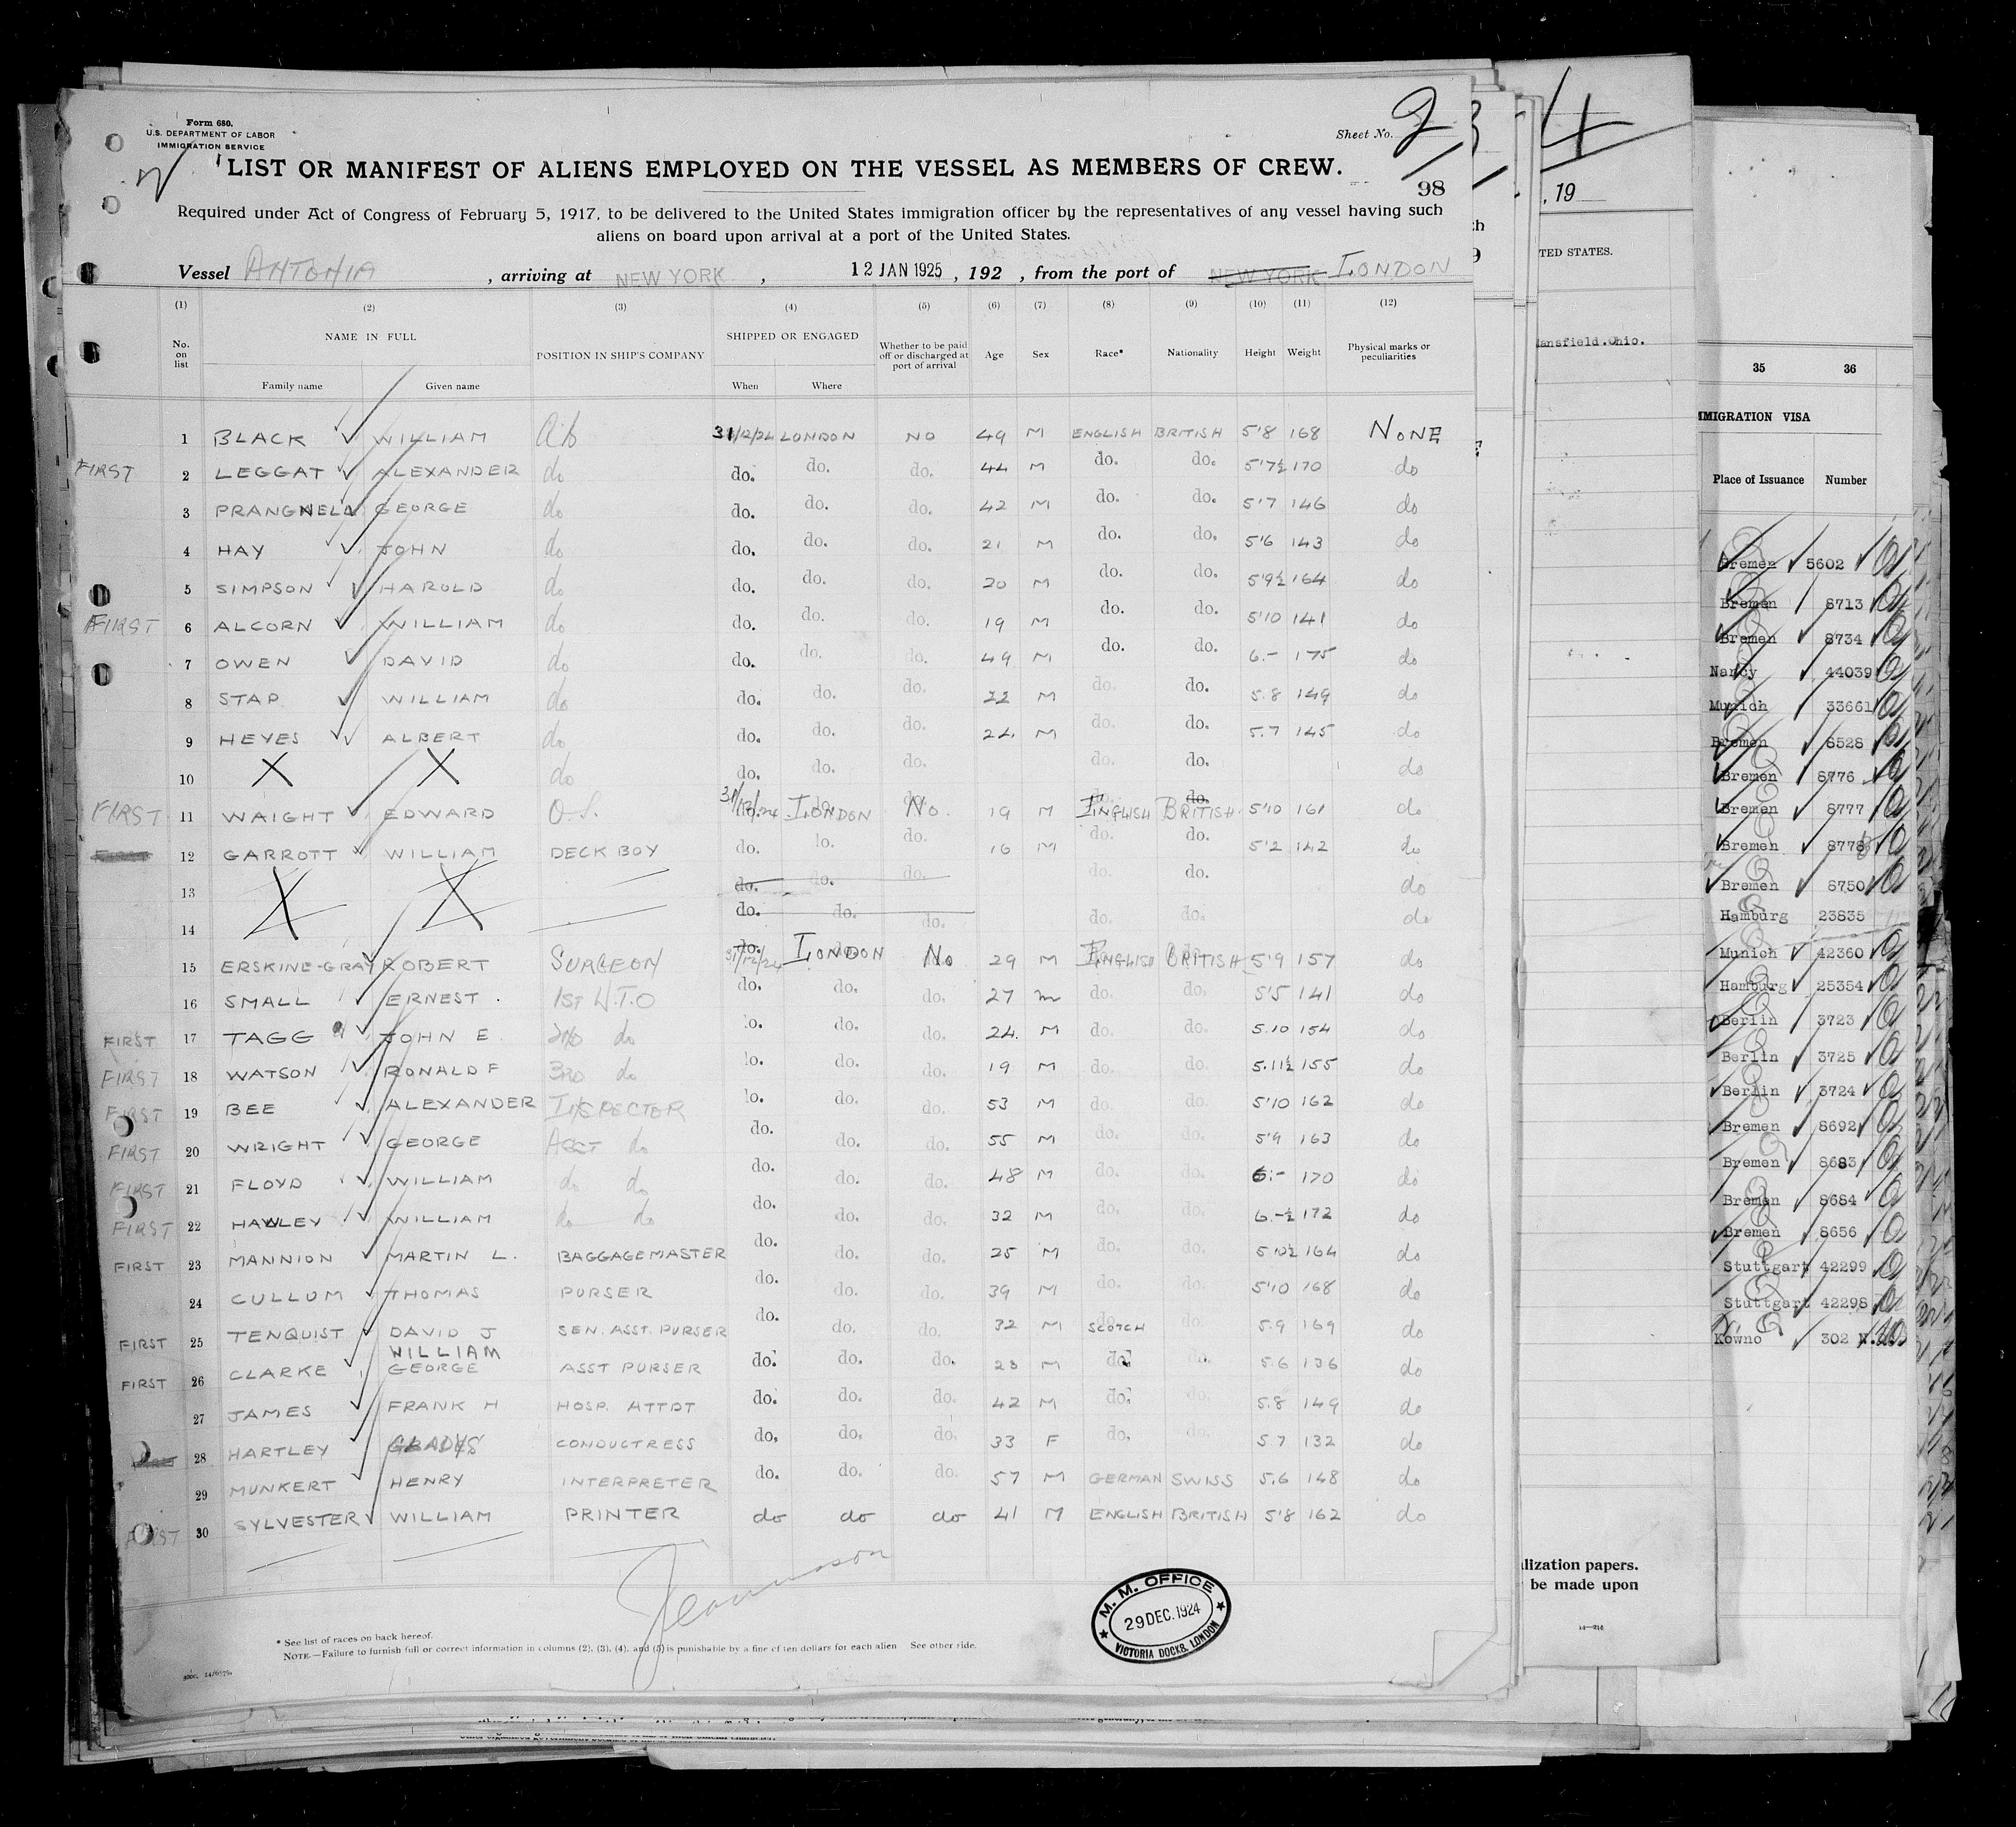 Form 680.
U.S. DEPARTMENT OF LABOR
IMMIGRATION SERVICE
Sheet No. 2
LIST OR MANIFEST OF ALIENS EMPLOYED ON THE VESSEL AS MEMBERS OF CREW.
98
Required under Act of Congress of February 5, 1917, to be delivered to the United States immigration officer by the representatives of any vessel having such
aliens on board upon arrival at a port of the United States.
Vessel ANTONIA, arriving at NEW YORK, 12 JAN 1925, 192 , from the port of NEW YORK LONDON
(1) (2) (3) (4) (5) (6) (7) (8) (9) (10) (11) (12)
No. on list NAME IN FULL POSITION IN SHIP'S COMPANY SHIPPED OR ENGAGED Whether to be paid off or discharged at port of arrival Age Sex Race* Nationality Height Weight Physical marks or peculiarities
Family name Given name When Where
1 BLACK WILLIAM AB 31/12/24 LONDON NO 49 M ENGLISH BRITISH 5'8 168 NONE
FIRST 2 LEGGAT ALEXANDER do do. do. do. 44 M do. do. 5'7½ 170 do
3 PRANGNELL GEORGE do do. do. do. 42 M do. do. 5'7 146 do
4 HAY JOHN do do. do. do. 21 M do. do. 5'6 143 do
5 SIMPSON HAROLD do do. do. do. 20 M do. do. 5'9½ 164 do
FIRST 6 ALCORN WILLIAM do do. do. do. 19 M do. do. 5'10 141 do
7 OWEN DAVID do do. do. do. 49 M do. do. 6.- 175 do
8 STAP WILLIAM do do. do. do. 22 M do. do. 5.8 149 do
9 HEYES ALBERT do do. do. do. 24 M do. do. 5.7 145 do
10 X X do do. do. do. do. do. do
FIRST 11 WAIGHT EDWARD O.S. 31/12/24 LONDON No. 19 M ENGLISH BRITISH 5'10 161 do
FIRST 12 GARROTT WILLIAM DECK BOY do. do. do. 16 M do. do. 5'2 142 do
13 X X do. do. do. do. do. do
14 do. do. do. do. do. do
15 ERSKINE-GRAY ROBERT SURGEON 31/12/24 LONDON No 29 M ENGLISH BRITISH 5'9 157 do
16 SMALL ERNEST. 1ST W.T.O do. do. do. 27 m do. do. 5'5 141 do
FIRST 17 TAGG JOHN E 2ND do do. do. do. 24. M do. do. 5.10 154 do
FIRST 18 WATSON RONALD F 3RD do do. do. do. 19 M do. do. 5.11½ 155 do
FIRST 19 BEE ALEXANDER INSPECTOR do. do. do. 53 M do. do. 5'10 162 do
FIRST 20 WRIGHT GEORGE ASST do do. do. do. 55 M do. do. 5'9 163 do
FIRST 21 FLOYD WILLIAM do do do. do. do. 48 M do. do. 6.- 170 do
FIRST 22 HAWLEY WILLIAM do do do. do. do. 32 M do. do. 6.-½ 172 do
FIRST 23 MANNION MARTIN L. BAGGAGEMASTER do. do. do. 25 M do. do. 5.10½ 164 do
24 CULLUM THOMAS PURSER do. do. do. 39 M do. do. 5'10 168 do
FIRST 25 TENQUIST DAVID J SEN. ASST. PURSER do. do. do. 32 M SCOTCH do. 5.9 169 do
FIRST 26 CLARKE WILLIAM GEORGE ASST PURSER do. do. do. 23 M do. do. 5.6 136 do
27 JAMES FRANK H HOSP. ATTDT do. do. do. 42 M do. do. 5.8 149 do
28 HARTLEY GLADYS CONDUCTRESS do. do. do. 33 F do. do. 5.7 132 do
29 MUNKERT HENRY INTERPRETER do. do. do. 57 M GERMAN SWISS 5.6 148 do
FIRST 30 SYLVESTER WILLIAM PRINTER do do do 41 M ENGLISH BRITISH 5'8 162 do
M. M. OFFICE
29 DEC. 1924
VICTORIA DOCKS, LONDON
* See list of races on back hereof.
NOTE.—Failure to furnish full or correct information in columns (2), (3), (4), and (5) is punishable by a fine of ten dollars for each alien See other ride.
4
, 19
TED STATES.
ansfield.Ohio.
lization papers.
be made upon
35 36
MMIGRATION VISA
Place of Issuance Number
Bremen 5602
Bremen 8713
Bremen 8734
Nancy 44039
Munich 33661
Bremen 8528
Bremen 8776
Bremen 8777
Bremen 8778
Bremen 8750
Hamburg 23835
Munich 42360
Hamburg 25354
Berlin 3723
Berlin 3725
Berlin 3724
Bremen 8692
Bremen 8683
Bremen 8684
Bremen 8656
Stuttgart 42299
Stuttgart 42298
Kowno 302